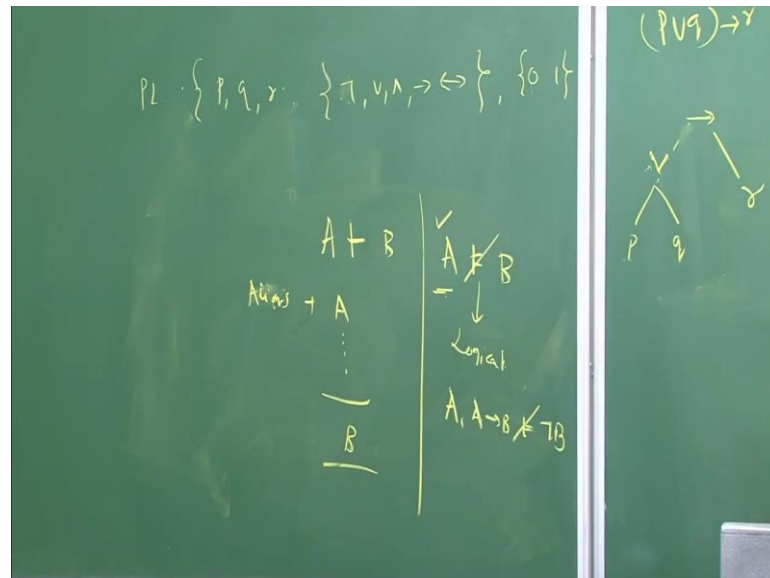 PL · { P, q, r · { ¬, ∨, ∧, → ↔ }, {0 1}
A ⊢ B
+ A
B
✓
A ⊭ B
↓
Logical
A, A → B ⊭ ¬B
(P∨q) → r
→
∨ r
P q